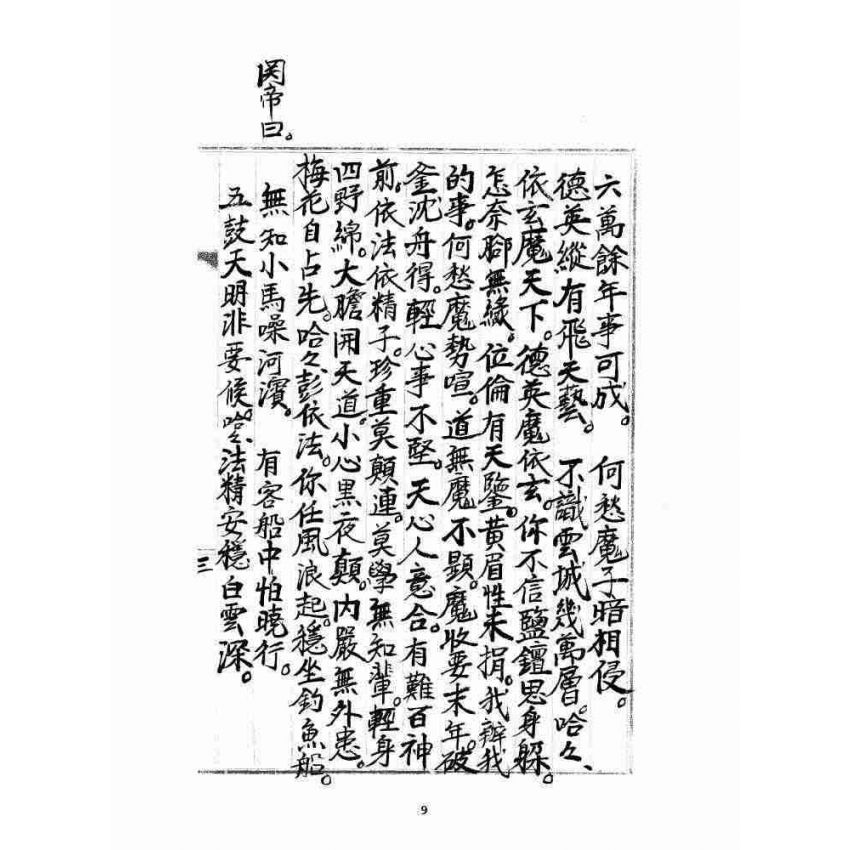 六萬餘年事可成。何愁魔子暗相侵。
德英縱有飛天藝。不識雲城幾萬層。哈々、
依玄魔天下。德英魔依玄。你不信鹽鐘思身躲。
怎奈腳無緣。位倫有天鑒。黃眉性未捐。我辦我
的事。何愁魔勢喧。道無魔不顯。魔收要末年。破
釜沈舟得。輕心事不堅。天心人意合。有難百神
前。依法依精子。珍重莫顛連。莫學無知輩。輕身
四野綿。大膽開天道。小心黑夜顛。內嚴無外患。
梅花自占先。哈々彭依法。你任風浪起。穩坐釣魚船。
関帝曰。
無知小馬噪河濱。有客船中怕曉行。
五鼓天明非要候。哈々法精安穩白雲深。
三
9